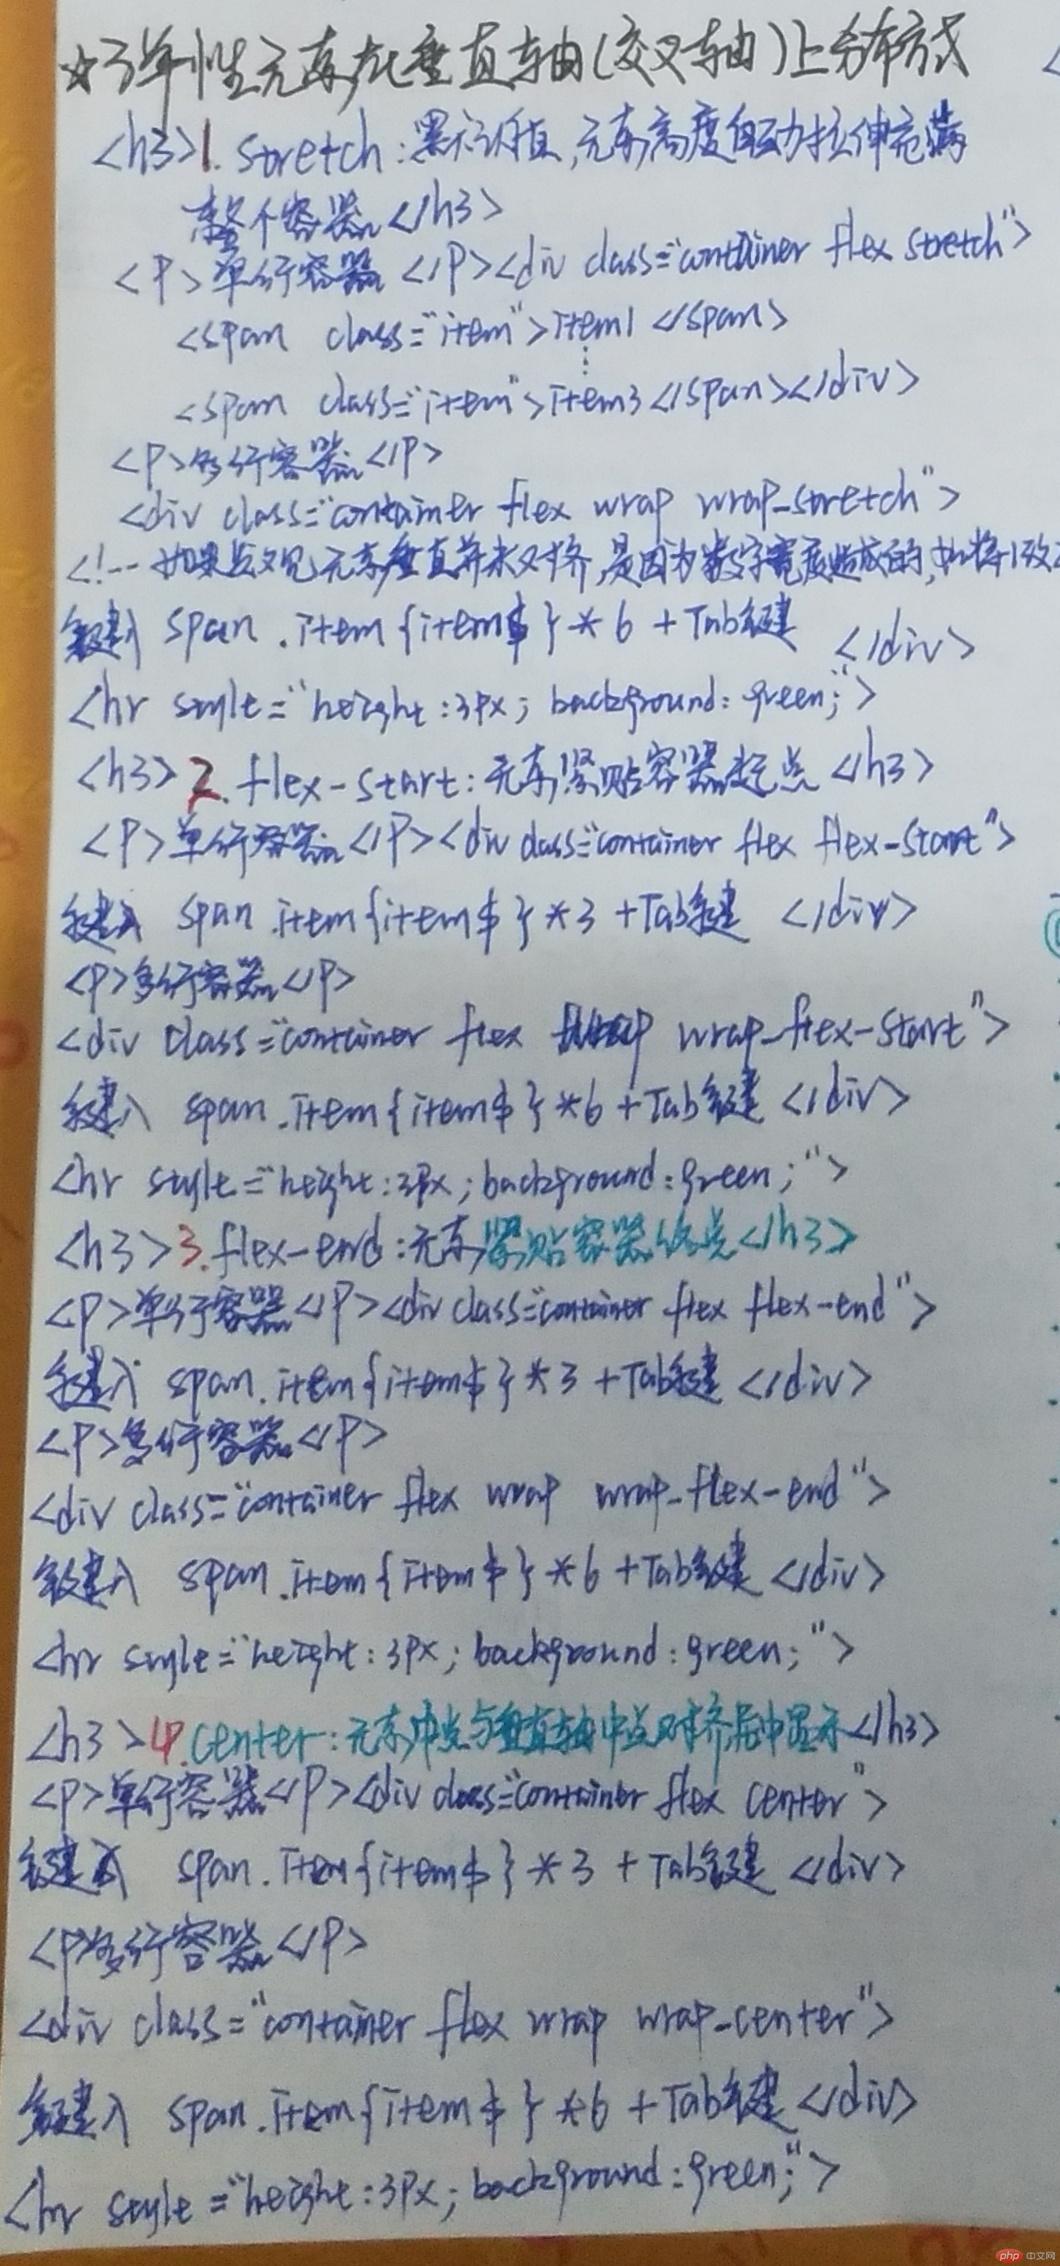 ☆弹性元素在垂直轴(交叉轴)上分布方式
<h3>1. stretch:默认值,元素高度自动拉伸充满
整个容器</h3>
<P>单行容器</P><div class="container flex stretch">
<span class="item">item1</span>
⋮
<span class="item">item3</span></div>
<P>多行容器</P>
<div class="container flex wrap wrap-stretch">
<!-- 如果发现元素垂直并未对齐,是因为数字宽度造成的,如将1改
键入 span.item{item$}*6+Tab键 </div>
<hr style="height:3px; background:green;">
<h3>2. flex-start:元素紧贴容器起点</h3>
<P>单行容器</P><div class="container flex flex-start">
键入 span.item{item$}*3+Tab键 </div>
<P>多行容器</P>
<div class="container flex wrap-flex-start">
键入 span.item{item$}*6+Tab键 </div>
<hr style="height:3px; background:green;">
<h3>3. flex-end:元素紧贴容器终点</h3>
<P>单行容器</P><div class="container flex flex-end">
键入 span.item{item$}*3+Tab键 </div>
<P>多行容器</P>
<div class="container flex wrap wrap-flex-end">
键入 span.item{item$}*6+Tab键 </div>
<hr style="height:3px; background:green;">
<h3>4. center:元素中点与垂直轴中点对齐居中显示</h3>
<P>单行容器</P><div class="container flex center">
键入 span.item{item$}*3+Tab键 </div>
<P>多行容器</P>
<div class="container flex wrap wrap-center">
键入 span.item{item$}*6+Tab键 </div>
<hr style="height:3px; background:green;">
php 中文网